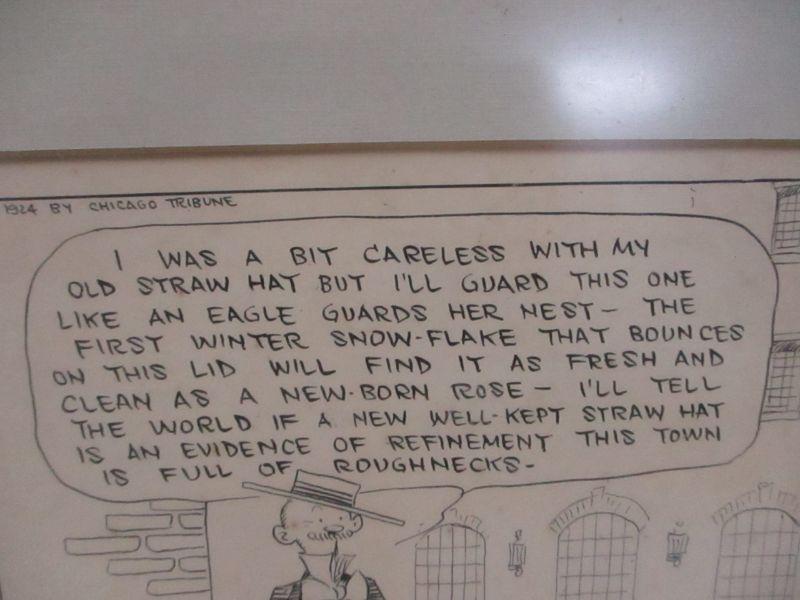 1924 BY CHICAGO TRIBUNE
I WAS A BIT CARELESS WITH MY
OLD STRAW HAT BUT I'LL GUARD THIS ONE
LIKE AN EAGLE GUARDS HER NEST— THE
FIRST WINTER SNOW-FLAKE THAT BOUNCES
ON THIS LID WILL FIND IT AS FRESH AND
CLEAN AS A NEW-BORN ROSE— I'LL TELL
THE WORLD IF A NEW WELL-KEPT STRAW HAT
IS AN EVIDENCE OF REFINEMENT THIS TOWN
IS FULL OF ROUGHNECKS-